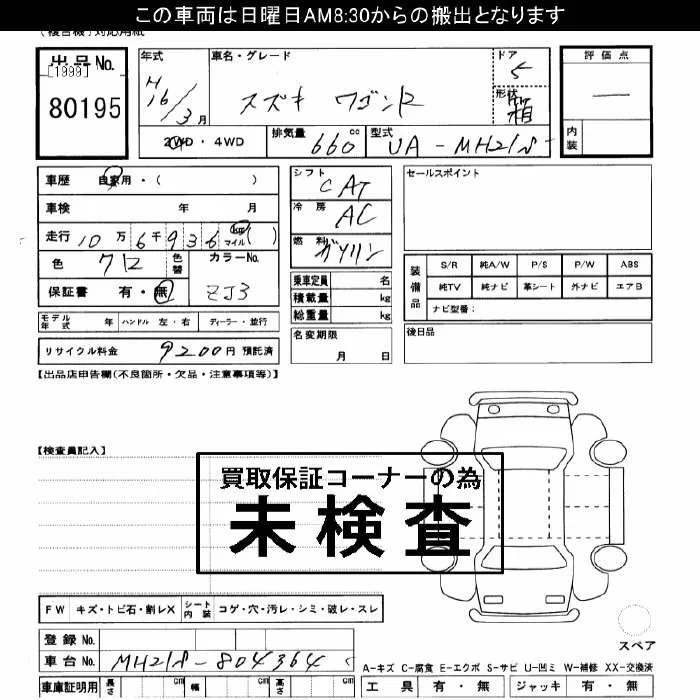 この車両は日曜日AM8:30からの搬出となります
(複合機)対応用紙
出品No.
[1999]
80195
年式
H16/3月
車名・グレード
スズキ ワゴンR
ドア
5
形状
箱
評価点
―
内装
2WD・4WD
排気量
660cc
型式
UA-MH21S
車歴 自家用・( )
車検 年 月
走行 10万6千936 km マイル( )
色 クロ
色替
カラーNo.
ZJ3
保証書 有・無
モデル年式 年 ハンドル 左・右 ディーラー・並行
リサイクル料金 9200円 預託済
シフト
CAT
冷房
AC
燃料
ガソリン
乗車定員 名
積載量 kg
総重量 kg
名変期限
月 日
セールスポイント
装備品
S/R 純A/W P/S P/W ABS
純TV 純ナビ 革シート 外ナビ エアB
ナビ型番:
後日品
【出品店申告欄(不良箇所・欠品・注意事項等)】
【検査員記入】
買取保証コーナーの為
未検査
FW キズ・トビ石・割レX シート内装 コゲ・穴・汚レ・シミ・破レ・スレ
登録No.
車台No. MH21S-804364
車庫証明用 長さ cm 幅 cm 高さ cm
スペア
A-キズ C-腐食 E-エクボ S-サビ U-凹ミ W-補修 XX-交換済
工具 有・無 ジャッキ 有・無